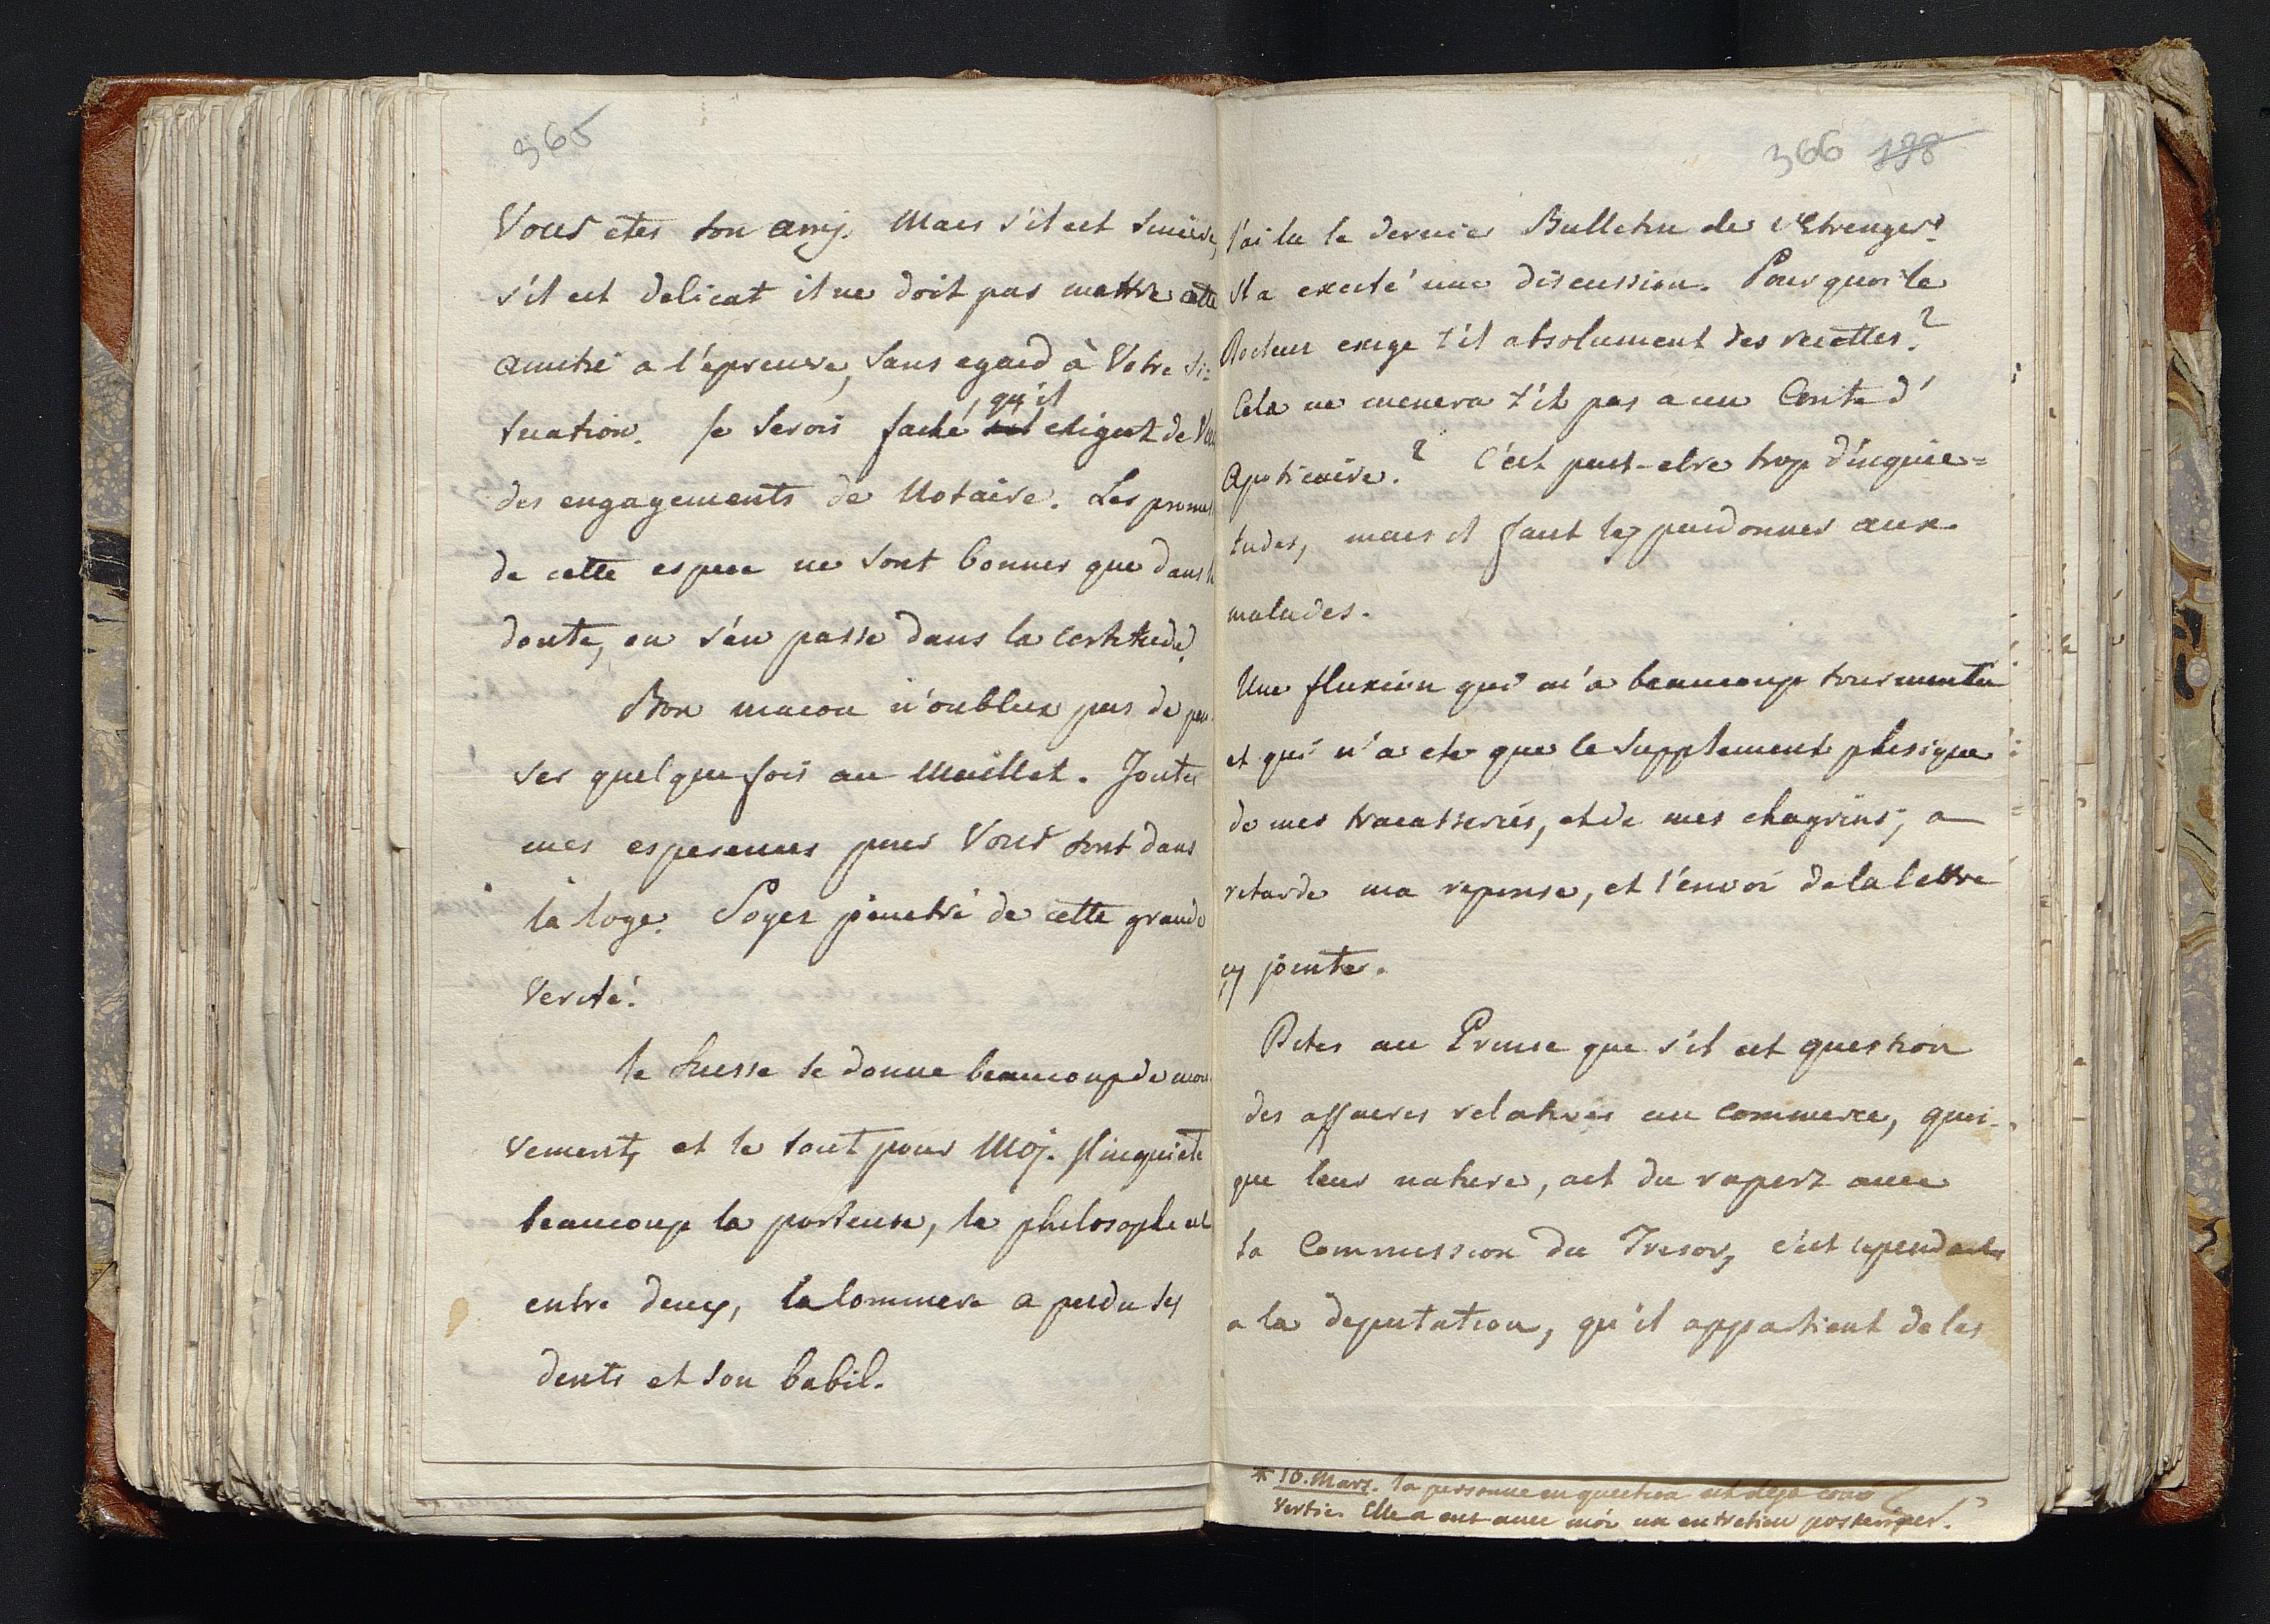 365
Vous etes son amj. Mais s'il est sincere,
s'il est delicat il ne doit pas mettre cette
amitié a l'épreuve, sans egard à Votre si=
tuation. Je serois faché, qu'il exigeat de
des engagements de Notaire. Les
de cette espece ne sont bonnes que dans
doute, on s'en passe dans la certitude.
Bon macon n'oubliez pas de pen
ser quelque fois au Maillet. Toutes
mes esperences pour Vous sont dans
la loge. Soyez pénetré de cette grande
Verité!
Le Suesse se donne beaucoup de mou
vement, et le tout pour Moj. Il inquiete
beaucoup la porteuse, le philosophe est
entre deux, la Commere a perdu ses
dents et son babil.
366 198
J'ai lu le dernier Bulletin de l'Etranger.
Il a excité une discussion. Pourquoi le
Docteur exige t'il absolument des recettes?
Cela ne menera t'il pas a un Conte d'
Apoticaire? C'est peut-etre trop d'inquie=
tudes, mais il faut les pardonner aux
malades.
Une fluxion qui m'a beaucoup tourmenté
et qui n'a ete que le supplement phisique
de mes tracasseriés, et de mes chagrins, a
retardé ma reponse, et l'envoi de la lettre
cy jointe.
Dites au Prince que s'il est question
des affaires relatives au commerce, quoi-
que leur nature, ait du raport avec
la Commission du Tresor, c'est cependant
a la deputation, qu'il appartient de les
* 10. Marz. la personne en question est deja con
vertie. Elle a eut avec moi un entretien posterieur.